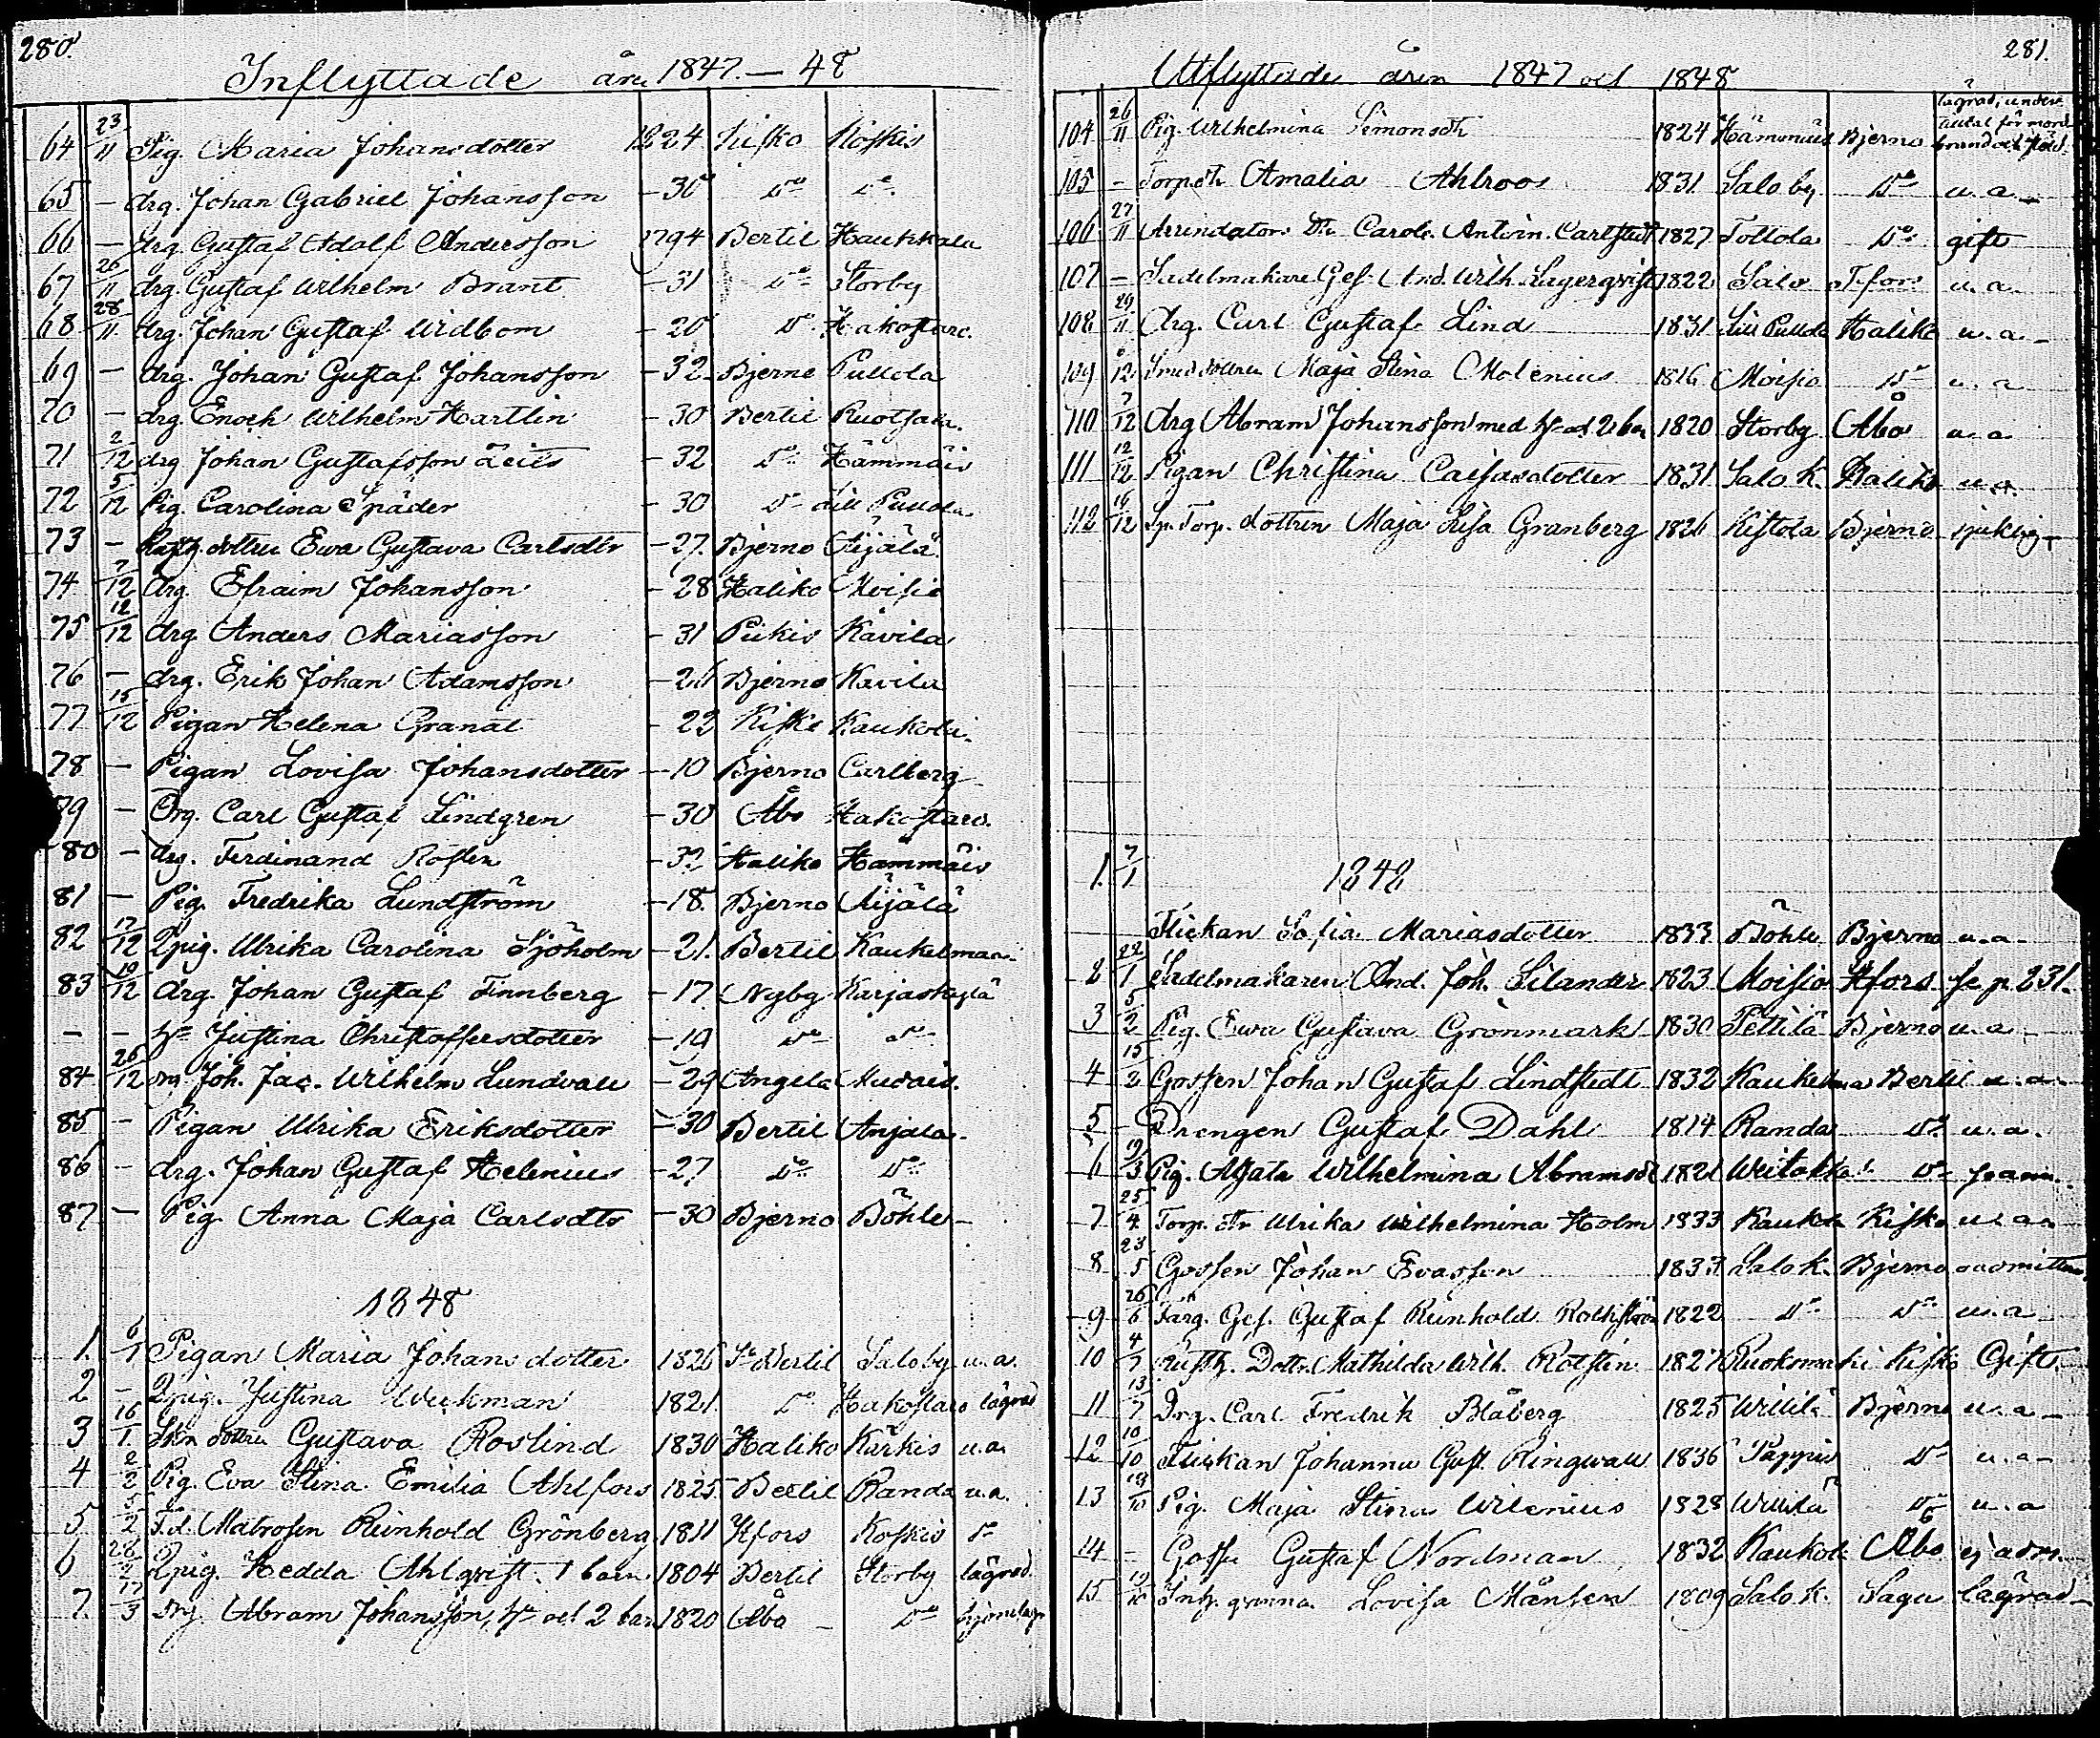 280.
Inflyttade åren 1847.— 48
64 23/11 Pig. Maria Johansdotter 1824 Kisko Koskis
65 — drg. Johan Gabriel Johansson —30 Do Do
66 — drg. Gustaf Adolf Andersson 1794 Bertil Haukkala
67 26/11 drg. Gustaf Wilhelm Brant —31 Do Storby
68 28/11 drg. Johan Gustaf Widbom —20 Do Hakostaro.
69 — drg. Johan Gustaf Johansson —32 Bjerno Pullola
70 — drg. Enoch Wilhelm Hartlin —30 Bertil
71 2/12 drg Johan Gustafsson —32 Do Hämmäis
72 5/12 Pig. Carolina Späder —30 Do Lill Pullola
73 — dottren Ewa Gustava Carlsdtr —27. Bjerno Äijälä
74 7/12 drg. Efraim Johansson —28 Haliko Moisio
75 12/12 drg. Anders Mariasson —31 Pikis Kavila
76 — drg. Erik Johan Adamsson —26 Bjerno Kavila
77 15/12 Pigan Helena Granat —22 Kisko Kaukola.
78 — Pigan Lovisa Johansdotter —10 Bjerno Carlberg
79 — Drg. Carl Gustaf Lindgren —30 Åbo Hakostaro.
80 — drg. Ferdinand Rosten —32 Haliko Hämmäis
81 — Pig. Fredrika Lundström —18. Bjerno Äijälä
82 17/12 Qpig. Ulrika Carolina Sjöholm —21. Bertil Kaukelmaa.
83 19/12 drg. Johan Gustaf Finnberg —17 Nyby Karjaskylä
— — Ho Justina Christoffersdotter —19 Do Do
84 26/12 drg. Joh. Jac. Wilhelm Lundvall —29 Angela
85 — Pigan Ulrika Eriksdotter —30 Bertil Anjala.
86 — drg. Johan Gustaf Helenius —27 Do Do
87 — Pig. Anna Maja Carlsdtr —30 Bjerno Böhle—
1848
1. 6/1 Pigan Maria Johansdotter 1826 St Bertil Saloby u.a.
2 — Qpig. Justina Wickman 1821. Do Hakostaro lägrad
3 16/1 dottren Gustava Roslind 1830 Haliko Kärkis u.a.
4 2/2 Pig. Eva Stina Emilia Ahlfors 1825 Bertil Randa u.a.
5 5/2 F.d. Matrosen Reinhold Grönberg 1811 Hfors Koskis Do
6 28/2 Qpig. Hedda Ahlqvist. 1 barn. 1804 Bertil Storby lägrad.
7. 17/3 Drg. Abram Johansson, Ho och 2 barn 1820 Åbo — Do
281.
Utflyttade åren 1847 och 1848
104 26/11 Pig. Wilhelmina Simonsdtr 1824 Hämmäis Bjerno lägrad, under tiltal för mord brand och stöld.
105 — Torp.dtr Amalia Ahlroos 1831 Salo by Do u.a.—
106 27/11 Arrendators Dtr Carol. Antoin. Carlstedt 1827 Tottola Do gift
107 — Sadelmakare Ges. And. Wilh. Lagerqvist 1822 Salo T.fors u.a.
108 29/11 Drg. Carl Gustaf Lind 1831 Lill Pullola Haliko u.a.—
109 /12 dottren Maja Stina Molenius 1816 Moisio Do u.a
110 7/12 drg Abram Johansson med Ho och 2 barn 1820 Storby Åbo u.a.
111 12/12 Pigan Christina Caisasdotter 1831 Salo K. Haliko u.a.
112 16/12 Torp. dottren Maja Lisa Granberg 1826 Kistola Bjerno sjuklig—
1848
1. 7/1
Flickan Sofia Mariasdotter 1833 Böhle Bjerno u.a.
2 22/1 Sadelmakaren And. Joh. Silander 1823 Moisio Hfors se p. 231.
3 5/2 Pig. Ewa Gustava Grönmark 1830 Pettilä Bjerno u.a—
4 15/2 Gossen Johan Gustaf Lindstedt 1832 Kaukelmaa Bertil u.a.
5 — Drengen Gustaf Dahl 1814 Randa Do u.a.
6 19/3 Pig. Agata Wilhelmina Abramsdr 1821 Do
7 25/4 Torp. dtr Ulrika Wilhelmina Holm 1833 Kaukola Kisko u.a.
8 23/5 Gossen Johan Evasson 1833 Salo K. Bjerno oadmitterad
9 26/6 Färg. Ges. Gustaf Reinhold 1822 Do Do u.a.
10 4/7 Rusth. Dottr. Mathilda Wilh. Rotsten 1827 Ruokomaki Kisko Gift
11 13/7 Drg. Carl Fredrik Blåberg 1825 Willilä Bjerno u.a—
12 10/10 Flickan Johanna Gust. Ringwall 1836 Do u.a—
13 19/10 Pig. Maja Stina Wilenius 1828 Willilä Do u.a
14 — Gosse Gustaf Nordman 1832 Kaukola Åbo ej adm.
15 19/10 Inh. qvinna Lovisa Månsen 1809 Salo K. Sagu lägrad—